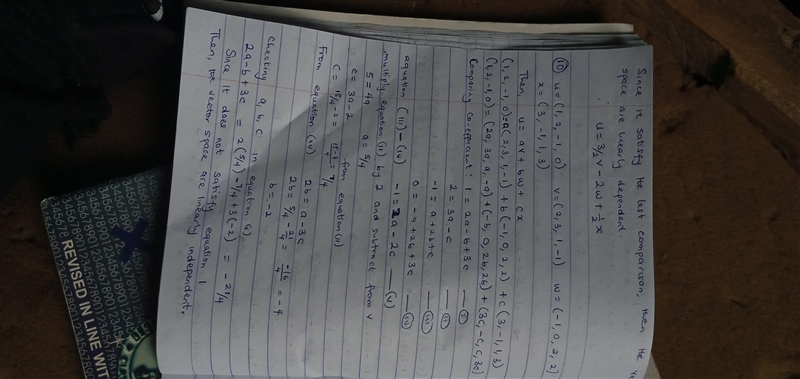 Since it satisfy the last comparison, then the ve
space are linearly dependent.
∴ u = 3/2 v - 2w + 1/2 x
(10) u = (1, 2, -1, 0) v = (2, 3, 1, -1) w = (-1, 0, 2, 2)
x = (3, -1, 1, 3)
Then, u = av + bw + cx
(1, 2, -1, 0) = a(2, 3, 1, -1) + b(-1, 0, 2, 2) + c(3, -1, 1, 3)
(1, 2, -1, 0) = (2a, 3a, a, -a) + (-b, 0, 2b, 2b) + (3c, -c, c, 3c)
Comparing co-efficient: 1 = 2a - b + 3c —— (i)
2 = 3a - c —— (ii)
-1 = a + 2b + c —— (iii)
0 = -a + 2b + 3c —— (iv)
equation (iii) - (iv) -1 = 2a - 2c —— (v)
multiply equation (ii) by 2 and subtract from v
5 = 4a a = 5/4
c = 3a - 2 from equation (ii)
c = 15/4 - 2 = 15-8/4 = 7/4
From equation (iv) 2b = a - 3c
2b = 5/4 - 21/4 = -16/4 = -4
b = -2
Checking a, b, c in equation (i)
2a - b + 3c = 2(5/4) - 7/4 + 3(-2) = -21/4
Since it does not satisfy equation 1
Then, the vector space are linearly independent.
REVISED IN LINE WIT